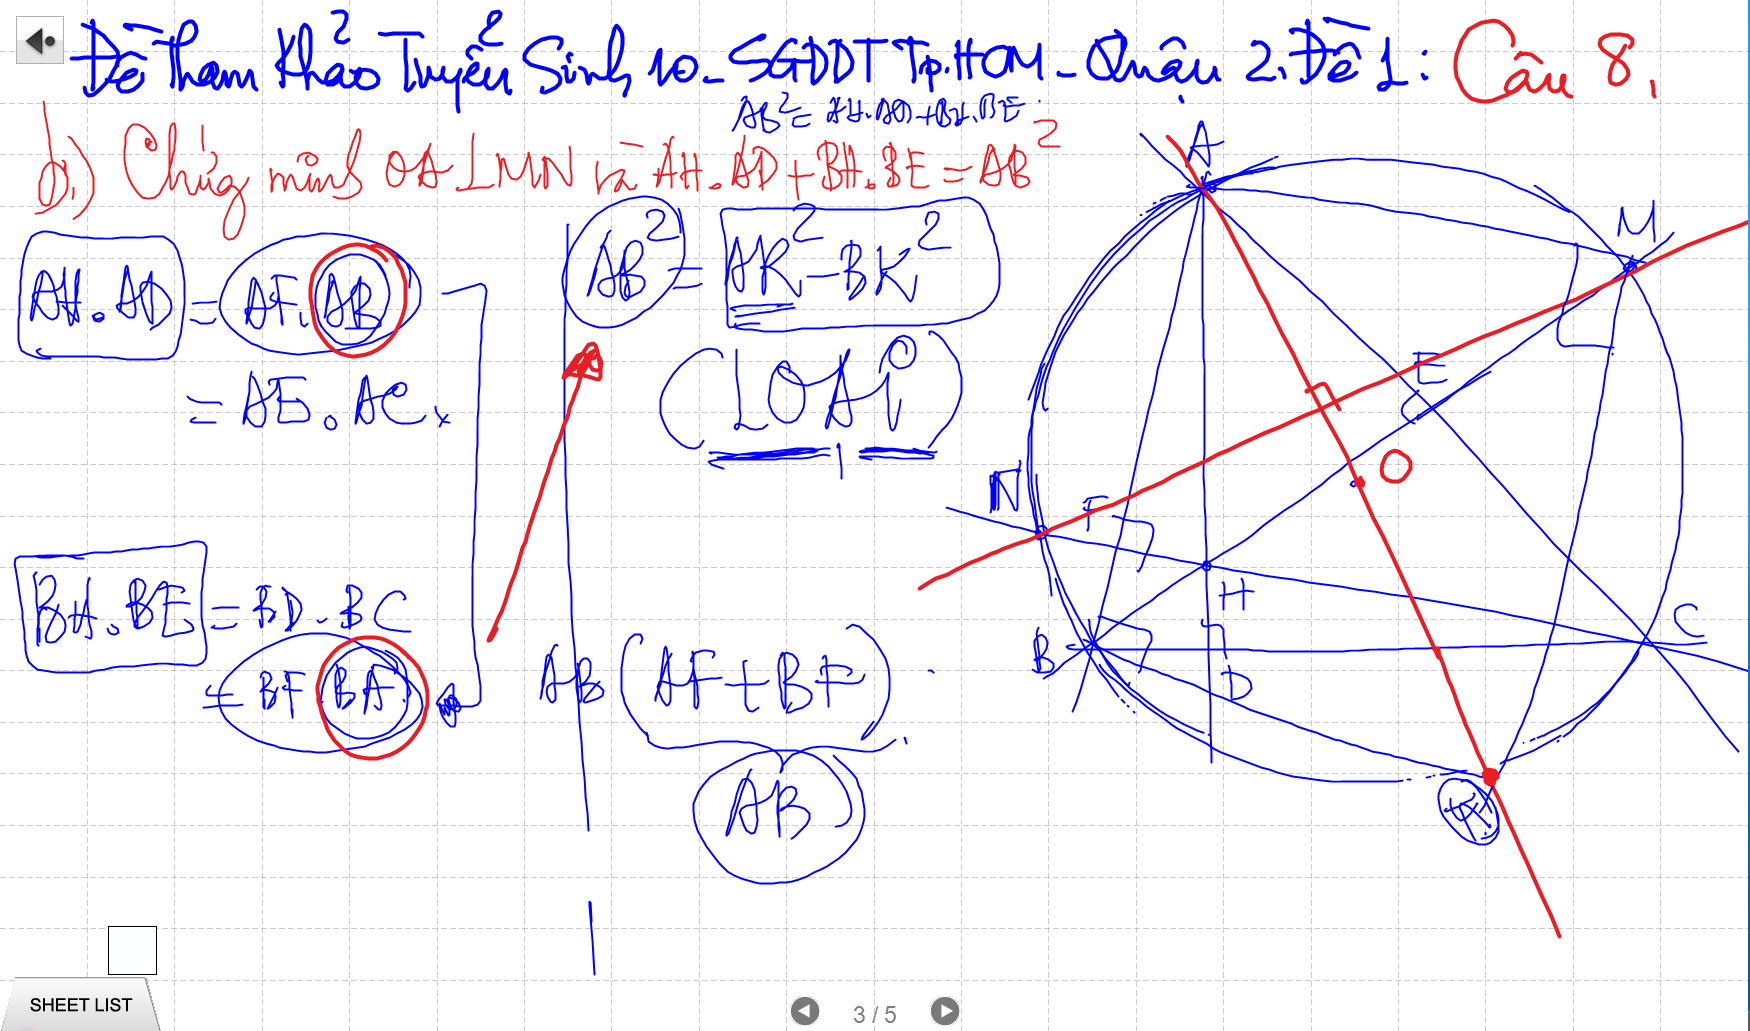 Đề Tham Khảo Tuyển Sinh 10 - SGDDT Tp.HCM - Quận 2. Đề 1: Câu 8.
AB² = AH.AD + BH.BE
d.) Chứng minh OA ⊥ MN và AH.AD + BH.BE = AB²
AH.AD = AF.AB
= AE.AC
AB² = AK² - BK²
(LOẠI)
BH.BE = BD.BC
= BF.BA
AB (AF + BF)
AB
A
M
E
O
N
F
H
B
C
D
K
SHEET LIST
3 / 5